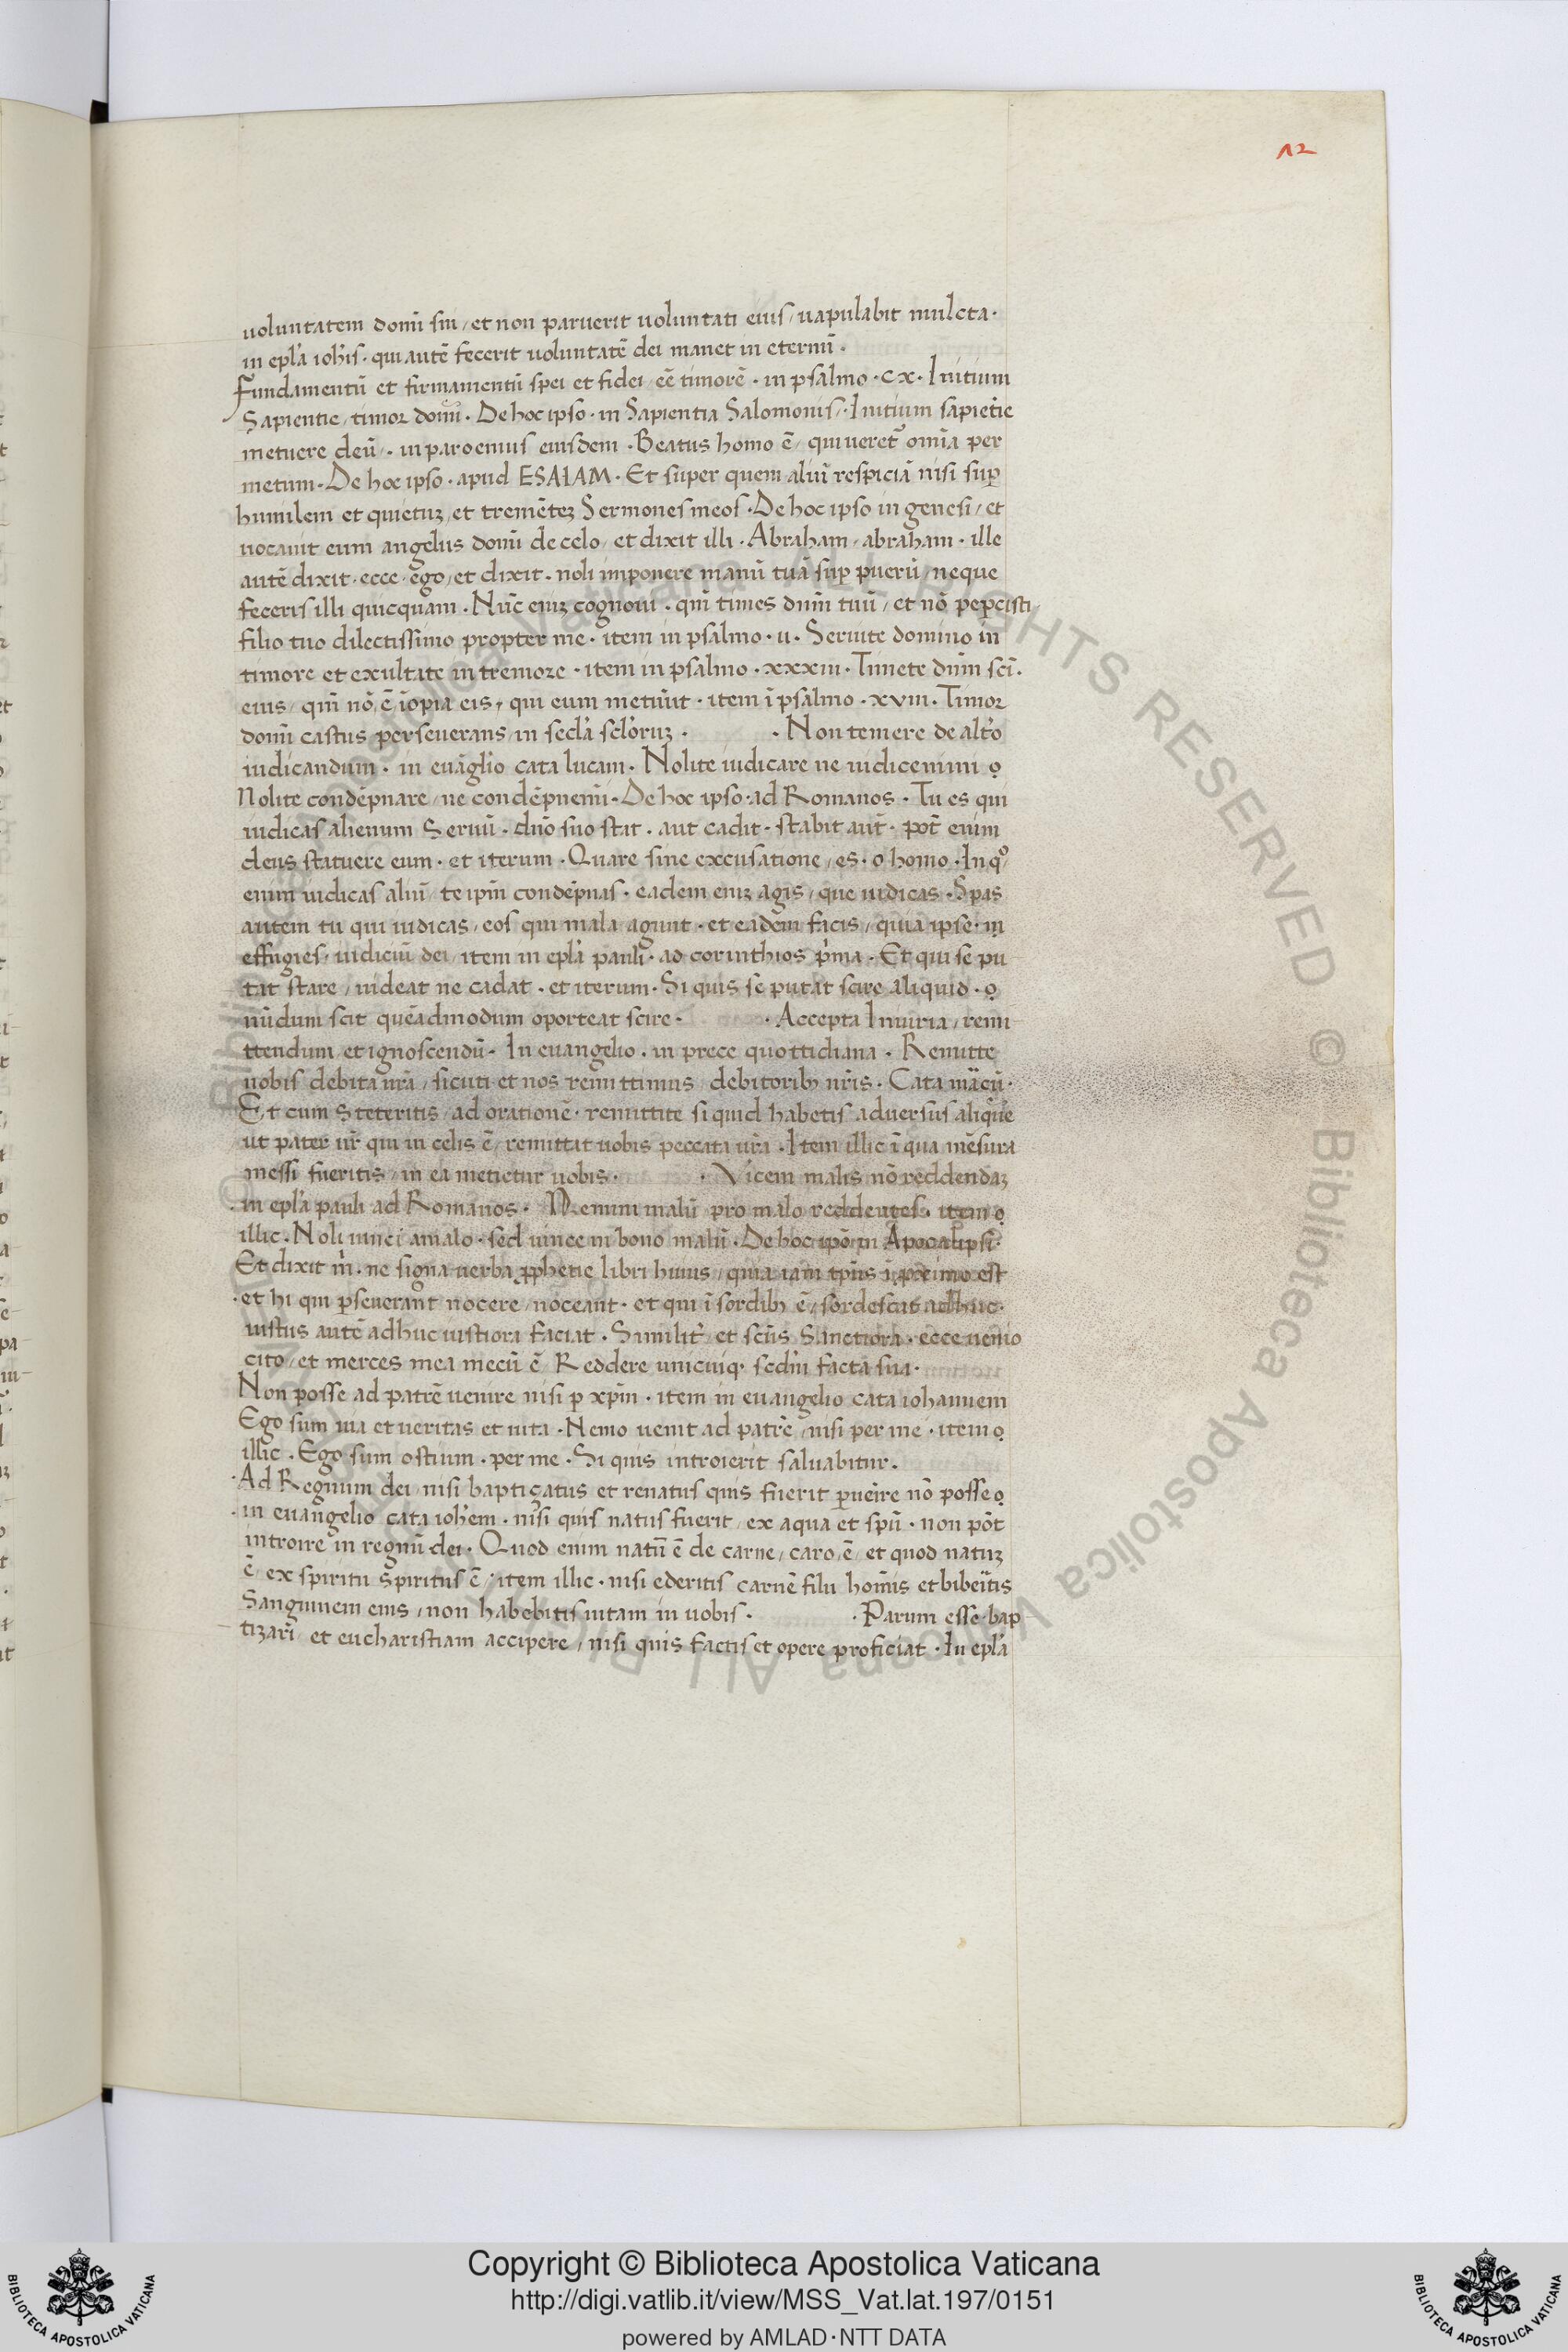 12
uoluntatem domī sui / et non paruerit uoluntati eius / uapulabit mulcta ·
in epl̓a ioh̓is · qui autē fecerit uoluntatē dei manet in eternū ·
Fundamentū et firmamentū spei et fidei / eē timorē · in psalmo · cx · Initium
Sapientie / timor domī · De hoc ipso · in Sapientia Salomonis / · Initium sapiētie
metuere deū / · in paroemiis eiusdem · Beatus homo ē / qui ueret᷑ omīa per
metum · De hoc ipso · apud ESAIAM · Et super quem aliū respiciā nisi suꝑ
humilem et quietuꝫ et tremēteꝫ Sermones meos · De hoc ipso in genesi / et
uocauit eum angelus domī de celo / et dixit illi · Abraham / abraham · ille
autē dixit · ecce · ego / et dixit · noli imponere manū tuā suꝑ puerū / neque
feceris illi quicquam · Nūc eniꝫ cognoui · qm̄ times dnm̄ tuū / et nō peꝑcisti
filio tuo dilectissimo propter me · item in psalmo · ii · Seruite domino in
timore et exultate in tremore · item in psalmo · xxxiii · Timete dnm̄ sc̄i ·
eius / qm̄ nō ē īopia eis / qui eum metuūt · item ī psalmo · xviii · Timor
domī castus perseuerans / in secl̓a scl̓oruꝫ · · Non temere de alt̓o
iudicandum · in euāglio cata lucam · Nolite iudicare ne iudicemini ꝙ
Nolite condēpnare / ne condēpnemī · De hoc ipso · ad Romanos · Tu es qui
iudicas alienum Seruū · dnō suo stat · aut cadit · stabit aūt · pōt enim
deus statuere eum · et iterum · Quare sine excusatione / es · o homo · In qº
enim iudicas aliū / te ipm̄ condēpnas · eadem eniꝫ agis / que iudicas · Spas
autem tu qui iudicas / eos qui mala agunt · et eadēm facis / quia ipse · m
effugies · iudiciū dei / item in epl̓a pauli · ad corinthios p̓ma · Et qui se pu
tat stare / uideat ne cadat · et iterum · Si quis se putat scire aliquid · ꝙ
nūdum scit quēadmodum oporteat scire · · Accepta Iniuria / remi
ttendum et ignoscendū · In euangelio · in prece quottidiana · Remitte
nobis debita nr̄a / sicuti et nos remittimus debitorib; nr̄is · Cata mācū ·
Et cum Steteritis / ad orationē · remittite si quid habetis aduersus aliquē
ut pater ur̄ qui in celis ē / remittat uobis peccata ur̄a · Item illic ī qua mēsura
messi fueritis / in ea metietur uobis · · Vicem malis nō reddendaꝫ
· in epl̓a pauli ad Romanos · Nemini malū pro malo reddentes · item ꝙ
illic · Noli uinci amalo · sed uince in bono malū · De hoc ipō in Apocalipsi ·
Et dixit m̓ · ne signa uerba ꝓphetie libri huius / quia iam tp̄us ī proximo est
· et hi qui ꝑseuerant nocere / noceant · et qui ī sordib; ē / sordescat adhuc ·
iustus autē adhuc iustiora faciat · Similit̓ et sc̄us Sanctiora · ecce uenio
cito / et merces mea mecū ē Reddere unicuiq; scd̓m facta sua ·
Non posse ad patrē uenire nisi ꝑ xp̄m · item in euangelio cata iohannem
Ego sum uia et ueritas et uita · Nemo uenit ad patrē / nisi per me · item ꝙ
illic · Ego sum ostium · per me · Si quis introierit saluabitur ·
· Ad Regnum dei / nisi baptiçatus et renatus quis fuerit ꝑueīre nō posse ꝙ
· in euangelio cata ioh̓em · nisi quis natus fuerit / ex aqua et spū · non pōt
introire in regnū dei · Quod enim natū ē de carne / caro / ē / et quod natuꝫ
ē / ex spiritu Spiritus ē · item illic · nisi ederitis carnē filii homīs et bibeītis
Sanguinem eius / non habebitis uitam in uobis · · Parum esse · bap
tizari et eucharistiam accipere / nisi quis factis et opere proficiat · In epl̓a
Copyright © Biblioteca Apostolica Vaticana
http://digi.vatlib.it/view/MSS_Vat.lat.197/0151
powered by AMLAD·NTT DATA